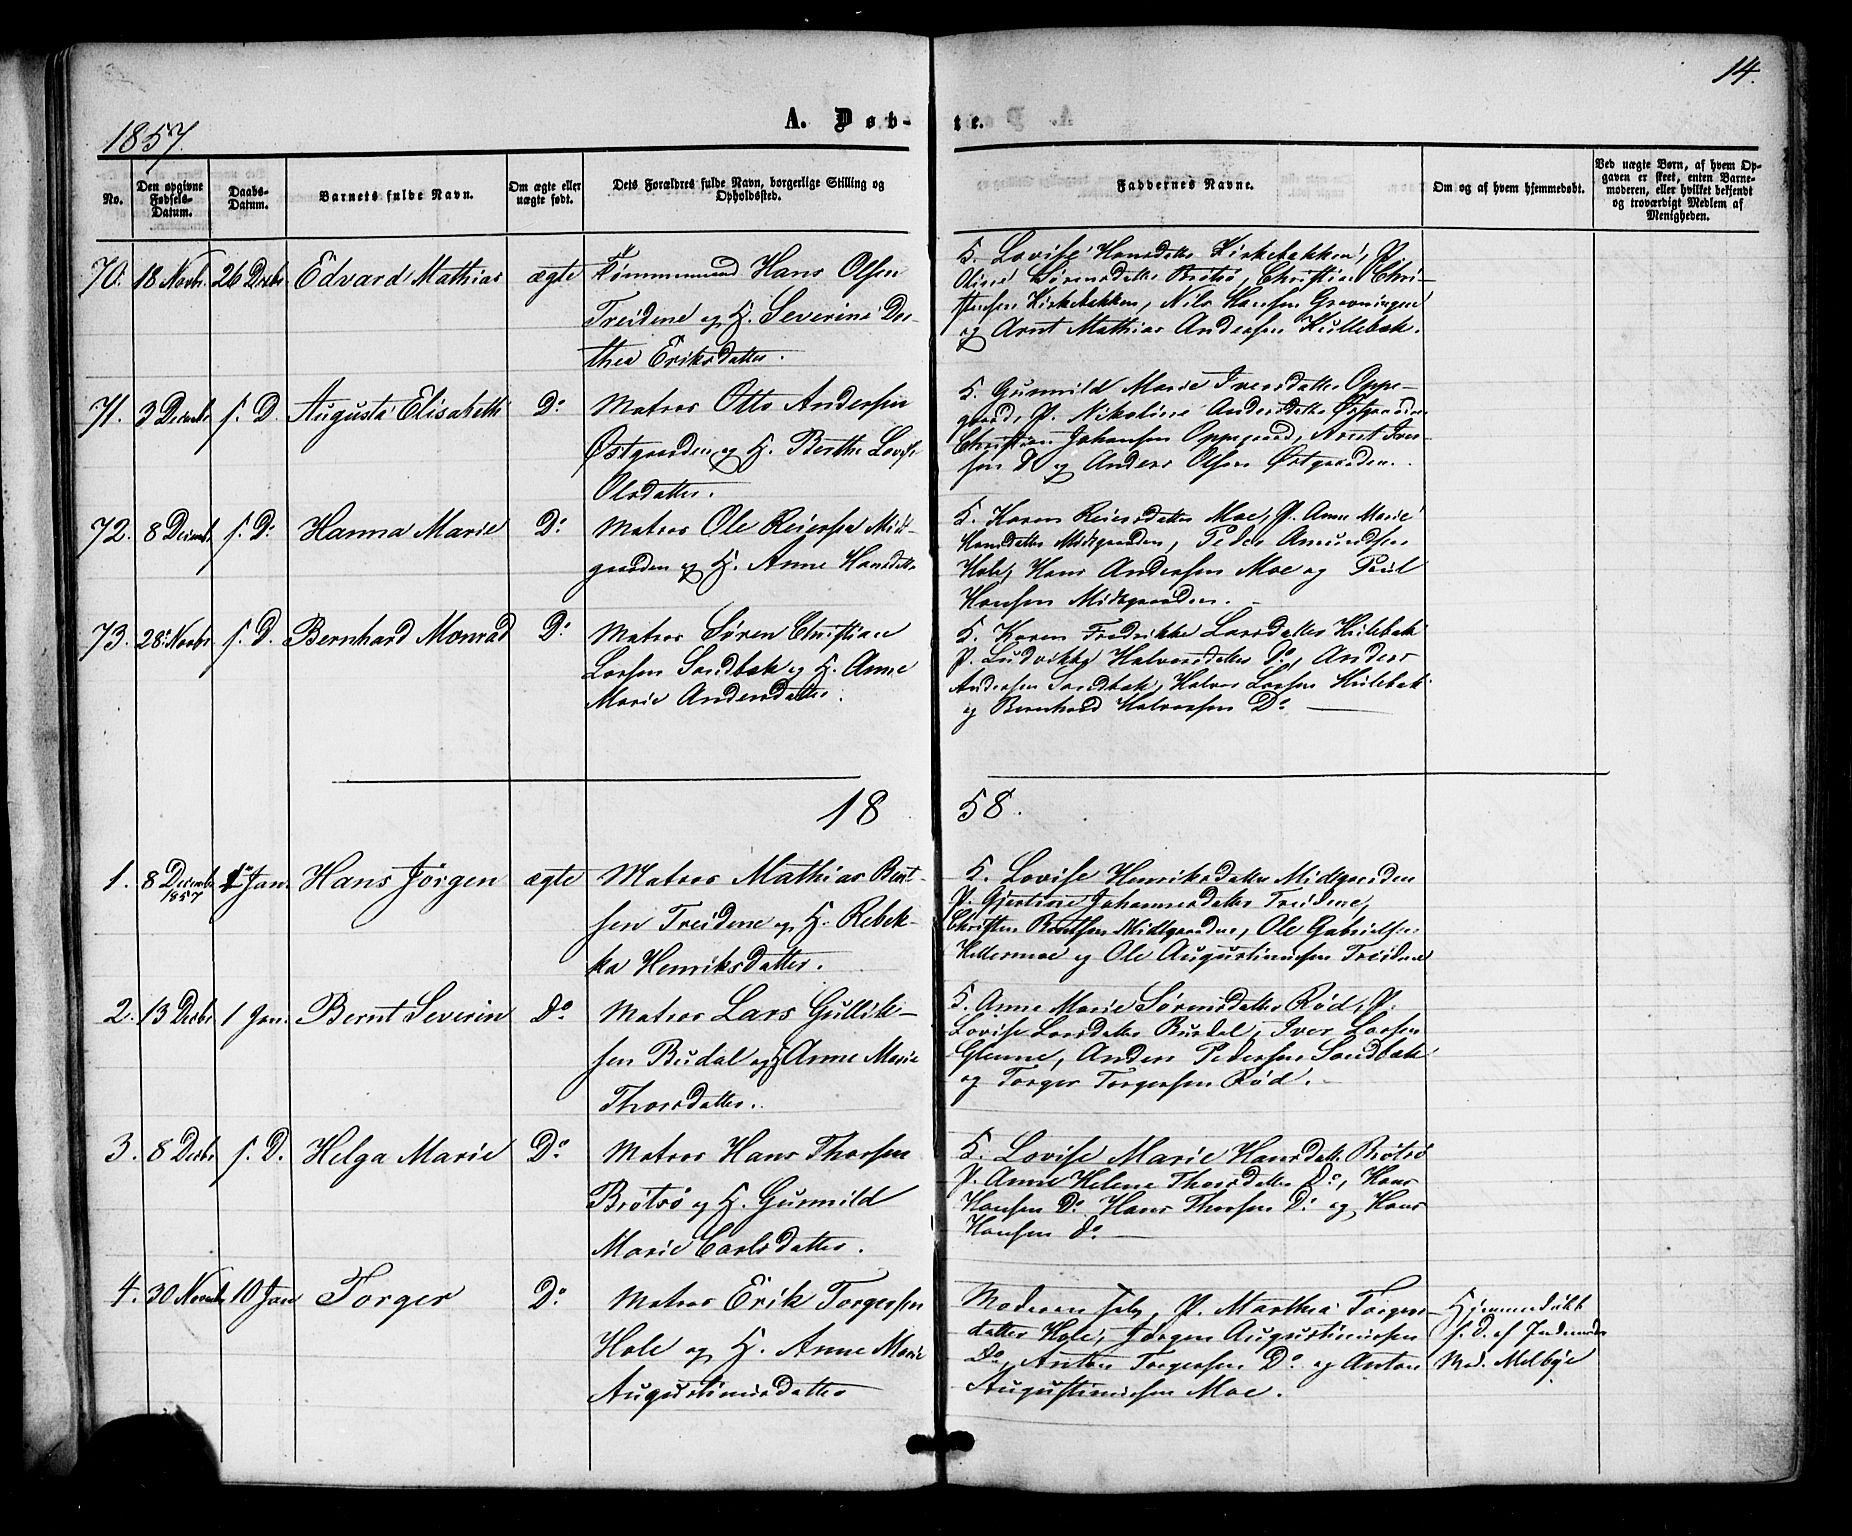 14.
A. Døb-te.
1857.
No.
Den opgivne Fødsels-Datum.
Daabs-Datum.
Barnets fulde Navn.
Om ægte eller uægte født.
Dets Forældres fulde Navn, borgerlige Stilling og Opholdssted.
Faddernes Navne.
Om og af hvem hjemmedøbt.
Ved uægte Børn, af hvem Opgaven er skeet, enten Barnemoderen, eller hvilket bekjendt og troværdigt Medlem af Menigheden.
70. 18 Novbr. 26 Decbr. Edvard Mathias ægte Tømmermand Hans Olsen
Treidene og H. Severine Do-
thea Eriksdatter.
F. Lovise Hansdatter Kirkebakken, P.
Oline Sørensdatter Brøtsø, Christian Chri-
stensen Kirkebakken, Nils Hansen Grevningen
og Arnt Mathias Andersen Hullebak.
71. 3 Decembr. f. D. Augusta Elisabeth Do. Matros Otto Andersen
Østgaarden og H. Berthe Lovise
Olsdatter.
F. Gunnild Marie Iversdatter Oppe-
gaard, P. Nikoline Andersdatter Østgaarden
Christian Johansen Oppegaard, Arnt Iver-
sen Do og Anders Olsen Østgaarden.
72. 8 Decembr. f. Do. Hanna Marie Do. Matros Ole Reiersen Midt-
gaarden og H. Anne Hansdatter
F. Karen Reiersdatter Moe, P. Anne Marie
Hansdatter Midtgaarden, Peder Amundsen
Hole, Hans Andersen Moe og Poul
Hansen Midtgaarden.
73. 28 Novbr. f. D. Bernhard Monrad Do. Matros Søren Christian
Larsen Sandbæk og H. Anne
Marie Andersdatter.
F. Karen Fredrikke Larsdatter Hulebak
P. Ludvikke Halvorsdatter Do, Anders
Andersen Sandbæk, Halvor Larsen Hulebak
og Bernhard Halvorsen Do
1858.
1. 8 Decembr. 1857 1 Jan. Hans Jörgen ægte Matros Mathias Bent-
sen Treidene og H. Rebek-
ka Henriksdatter.
F. Lovise Henriksdatter Midtgaarden
P. Gjertine Johannesdatter Treidene,
Christen Bentsen Midtgaardene, Ole Gabrielsen
Hellermoe og Ole Augustinussen Treidene
2. 13 Decbr. 1 Jan. Bernt Severin Do. Matros Lars Gullik-
sen Budal og H. Anne Marie
Thorsdatter.
F. Anne Marie Sørensdatter Rød, P.
Lovise Larsdatter Budal, Iver Larsen
Glenne, Anders Pedersen Sandbæk
og Torger Torgersen Rød.
3. 8 Decbr. f. D. Helga Marie Do. Matros Hans Thorsen
Brøtsø og H. Gunnild
Marie Carlsdatter.
F. Lovise Marie Hansdatter Brøtsø
P. Anne Helene Thorsdatter Do, Hans
Hansen Do. Hans Thorsen Do. og Hans
Hansen Do.
4. 30 Novembr. 10 Jan Torger Do. Matros Erik Torgersen
Hole og H. Anne Marie
Augustinusdatter
Moderen selv, P. Marthea Torgers-
datter Hole, Jørgen Augustinussen
Do, Anton Torgersen Do og Anton
Augustinussen Moe.
Hjemmedøbt
f. D. af
Mad. Melbye